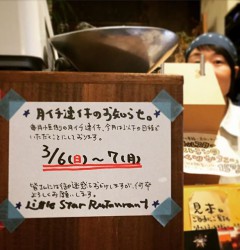 ★月イチ連休のお知らせ。★
毎月1度の月イチ連休、今月は以下の日程で
いただくことにしております。
3/6(日)〜7(月)
皆さんには御迷惑をおかけしますが、何卒
よろしくお願いします。
★Little Star Restaurant★
見本